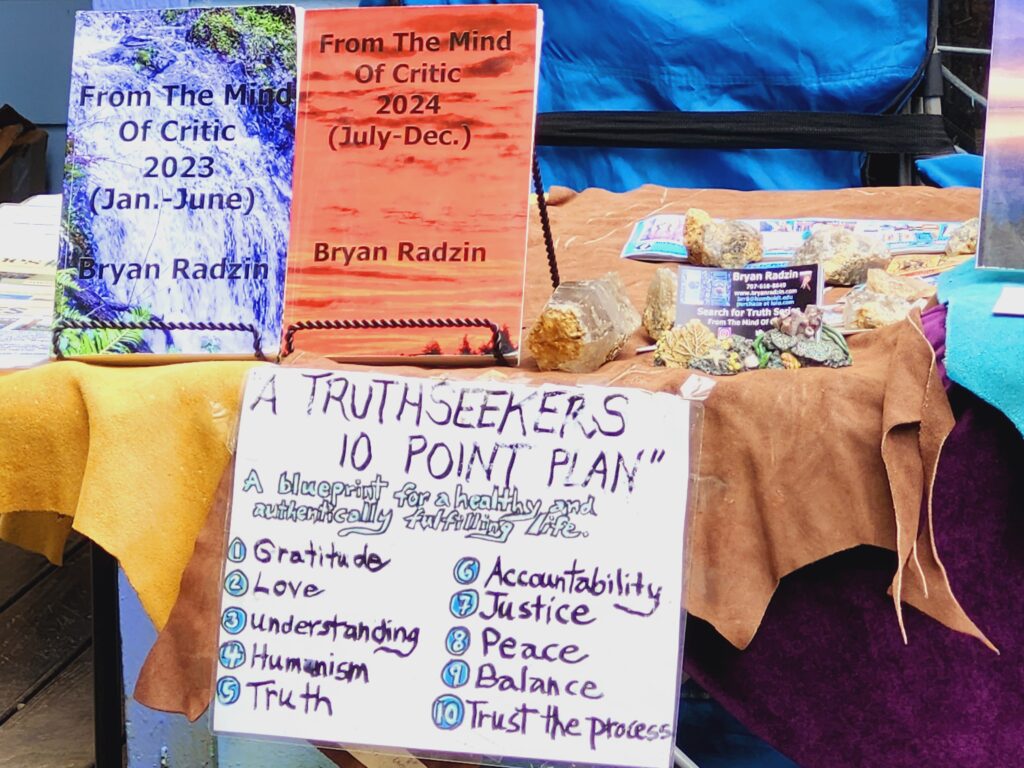 From The Mind
Of Critic
2023
(Jan.-June)
Bryan Radzin
From The Mind
Of Critic
2024
(July-Dec.)
Bryan Radzin
Bryan Radzin
www.bryanradzin.com
Search for Truth Series
From The Mind Of
"A TRUTHSEEKERS
10 POINT PLAN"
A blueprint for a healthy and
authentically fulfilling life.
1 Gratitude
2 Love
3 Understanding
4 Humanism
5 Truth
6 Accountability
7 Justice
8 Peace
9 Balance
10 Trust the process